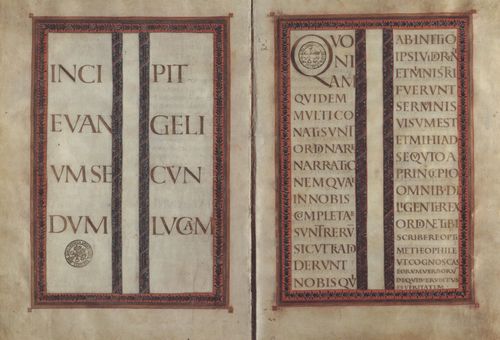 INCI PIT
EVAN GELI
VMSE CVN
DVM LVCAM
QVO
NI
AM
QUIDEM
MVLTICO
NATISVNT
ORDINAR
NARRATIO
NEMQVA
INNOBIS
COMPLETA
SVNTRERV
SICVTRAD
DERVNT
NOBISQV
ABINITIO
IPSIVIDRN
ETMINISRI
FVERVNT
SERMNIS
VISVMEST
ETMIHIAD
SEQVTOA
PRINCIPIO
OMNIBDI
LIGENTEREX
ORDINETIBI
SCRIBEREOPTI
METHEOPHILE
VTCOGNOSCAS
EORVMVERBORV
DEQVIBERVDITVS
ESVERITATEM